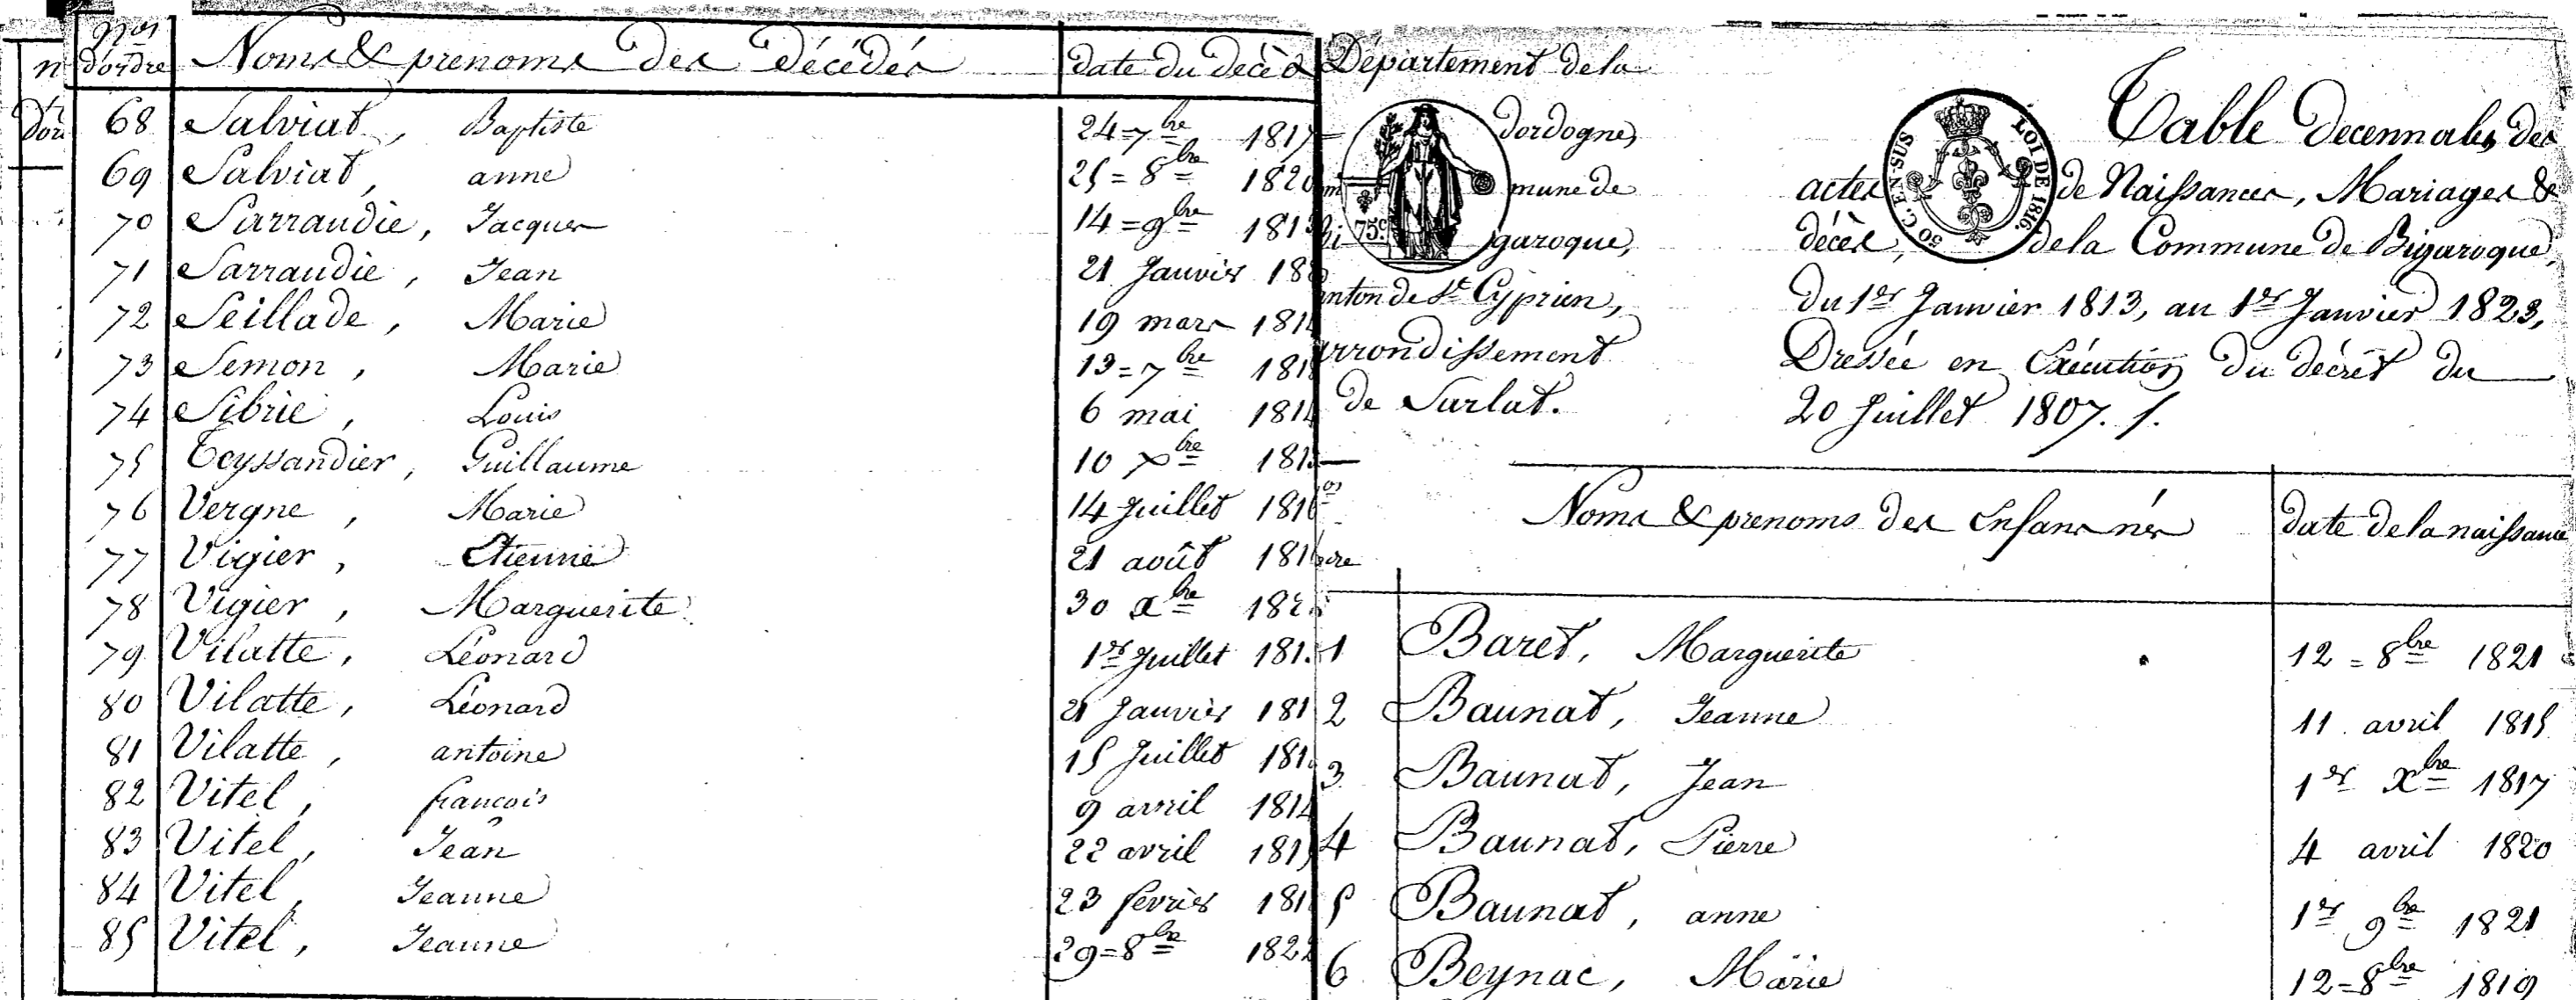 nos
d'ordre Noms & prenoms des décédés date du décès
68 Salviat, Baptiste 24=7bre 1817
69 Salviat, anne 25=8bre 1820
70 Sarraudie, Jacques 14=9bre 181
71 Sarraudie, Jean 21 Janvier 18
72 Seillade, Marie 19 mars 181
73 Semon, Marie 13=7bre 181
74 Sibrie, Louis 6 mai 181
75 Teyssandier, Guillaume 10 Xbre 181
76 Vergne, Marie 14 Juillet 1816
77 Vigier, Etienne 21 août 181
78 Vigier, Marguerite 30 Xbre 182
79 Vilatte, Léonard 1er Juillet 181
80 Vilatte, Léonard 21 Janvier 181
81 Vilatte, antoine 15 Juillet 181
82 Vitel, francois 9 avril 181
83 Vitel, Jean 22 avril 181
84 Vitel, Jeanne 23 fevrier 181
85 Vitel, Jeanne 29=8bre 1822
Département de la
dordogne,
mune de
garoque,
anton de St Cyprien,
arrondissement
de Sarlat.
75c.
50 C. EN SUS
LOI DE 1816.
Table decennales des
actes de Naissances, Mariages &
décès, de la Commune de Bigaroque,
du 1er Janvier 1813, au 1er Janvier 1823,
Dressée en Exécution du décret du
20 Juillet 1807.
Noms & prenoms des enfans nés date de la naissance
1 Baret, Marguerite 12=8bre 1821
2 Baunat, Jeanne 11 avril 1815
3 Baunat, Jean 1er Xbre 1817
4 Baunat, Pierre 4 avril 1820
5 Baunat, anne 1er 9bre 1821
6 Beynac, Marie 12=8bre 1819